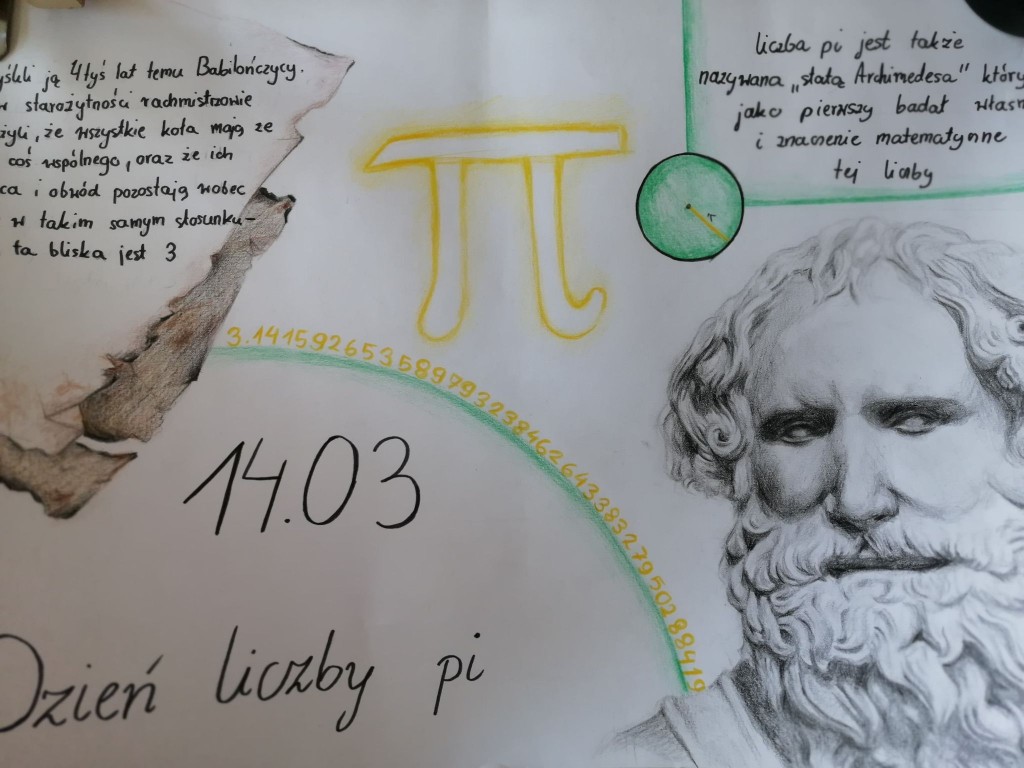 yślili ją 4 tyś lat temu Babilończycy.
w starożytności rachmistrzowie
żyli, że wszystkie koła mają ze
coś wspólnego, oraz że ich
ca i obwód pozostają wobec
w takim samym stosunku-
ta bliska jest 3
π
liczba pi jest także
nazywana „stałą Archimedesa” który
jako pierwszy badał własn
i znaczenie matematyczne
tej liczby
r
3.14159265358979323846264338327950288419
14.03
Dzień liczby pi